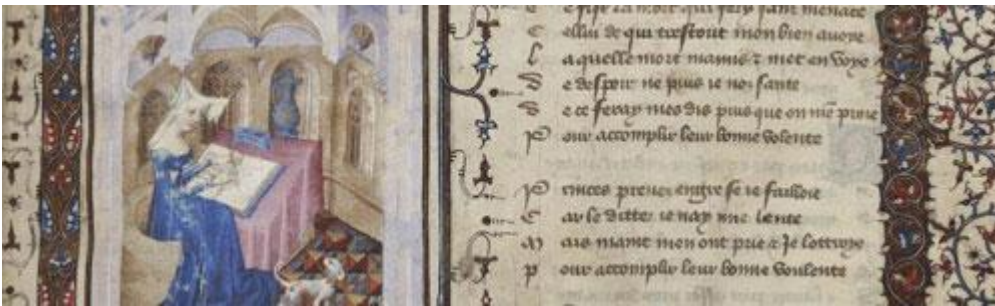 C e fist la mort qui fery sanz menace
C ellui de qui trestout mon bien avoye
L aquelle mort ma mis & met en voye
D e desespoir ne puis ie noz sante
D e ce feray mes dis puis que on men prie
P our accomplir leur bonne volente
P rinces prenez en gre se ie failloie
C ar le ditter ie nay mie hente
M ais maint men ont prie & Je lottroye
P our accomplir leur bonne voulente